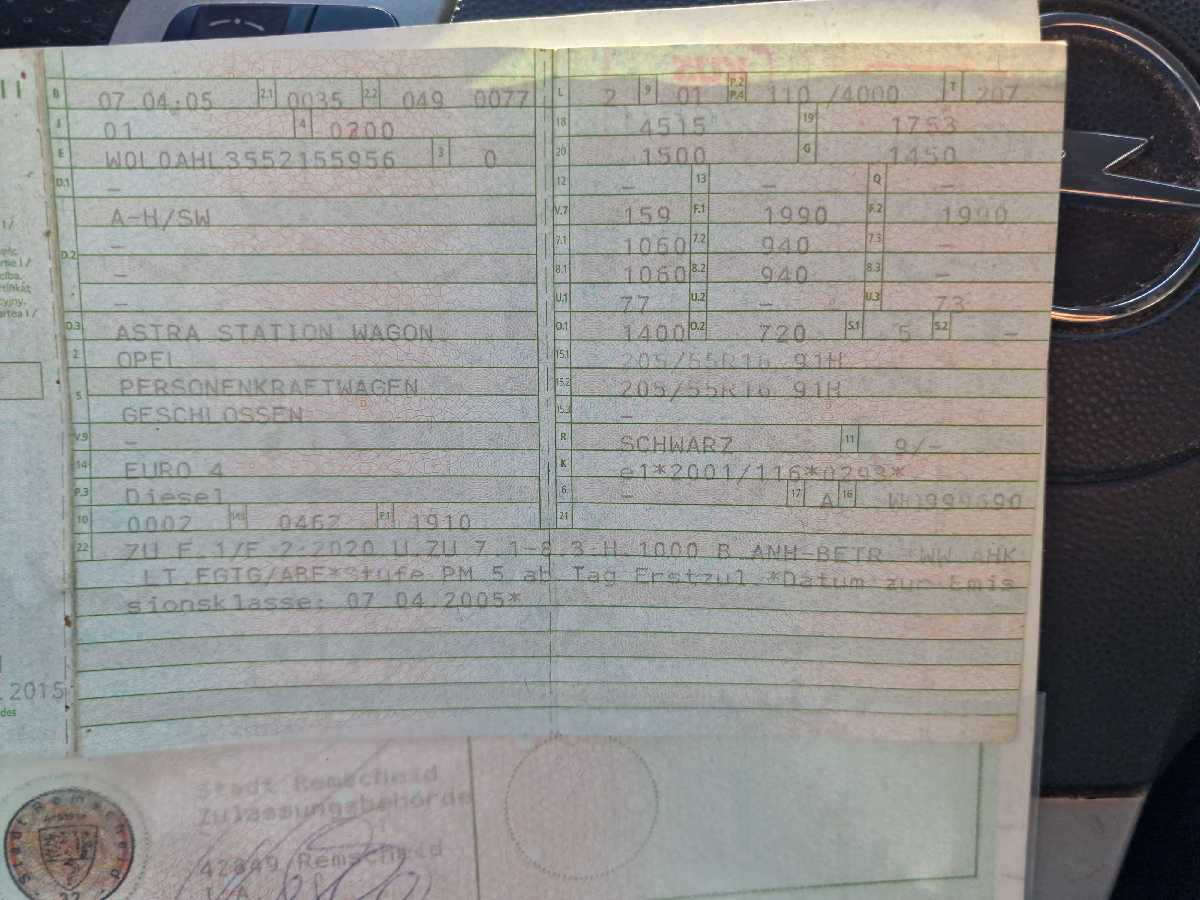 B 07.04.05 2.1 0035 2.2 049 0077
J 01 4 0200
E W0L0AHL3552155956 3 0
D.1 –
A-H/SW
D.2 –
–
–
D.3 ASTRA STATION WAGON
2 OPEL
5 PERSONENKRAFTWAGEN
GESCHLOSSEN
V.9 –
14 EURO 4
P.3 Diesel
10 0002 14.1 0462 P.1 1910
L 2 9 01 P.2 P.4 110 /4000 T 207
18 4515 19 1753
20 1500 G 1450
12 – 13 – Q –
V.7 159 F.1 1990 F.2 1990
7.1 1060 7.2 940 7.3 –
8.1 1060 8.2 940 8.3 –
U.1 77 U.2 – U.3 73
O.1 1400 O.2 720 S.1 5 S.2 –
15.1 205/55R16 91H
15.2 205/55R16 91H
15.3 –
R SCHWARZ 11 9/–
K e1*2001/116*0293*
6 – 17 A 16
21
22 ZU F.1/F.2:2020 U.ZU 7.1-8.3-H.1000 B.ANH-BETR.*WW.AHK
LT.EGTG/ABE*Stufe PM 5 ab Tag Erstzul.*Datum zur Emis
sionsklasse: 07.04.2005*
2015
des
Stadt Remscheid
Zulassungsbehörde
42849 Remscheid
I.A.
Stadt Remscheid